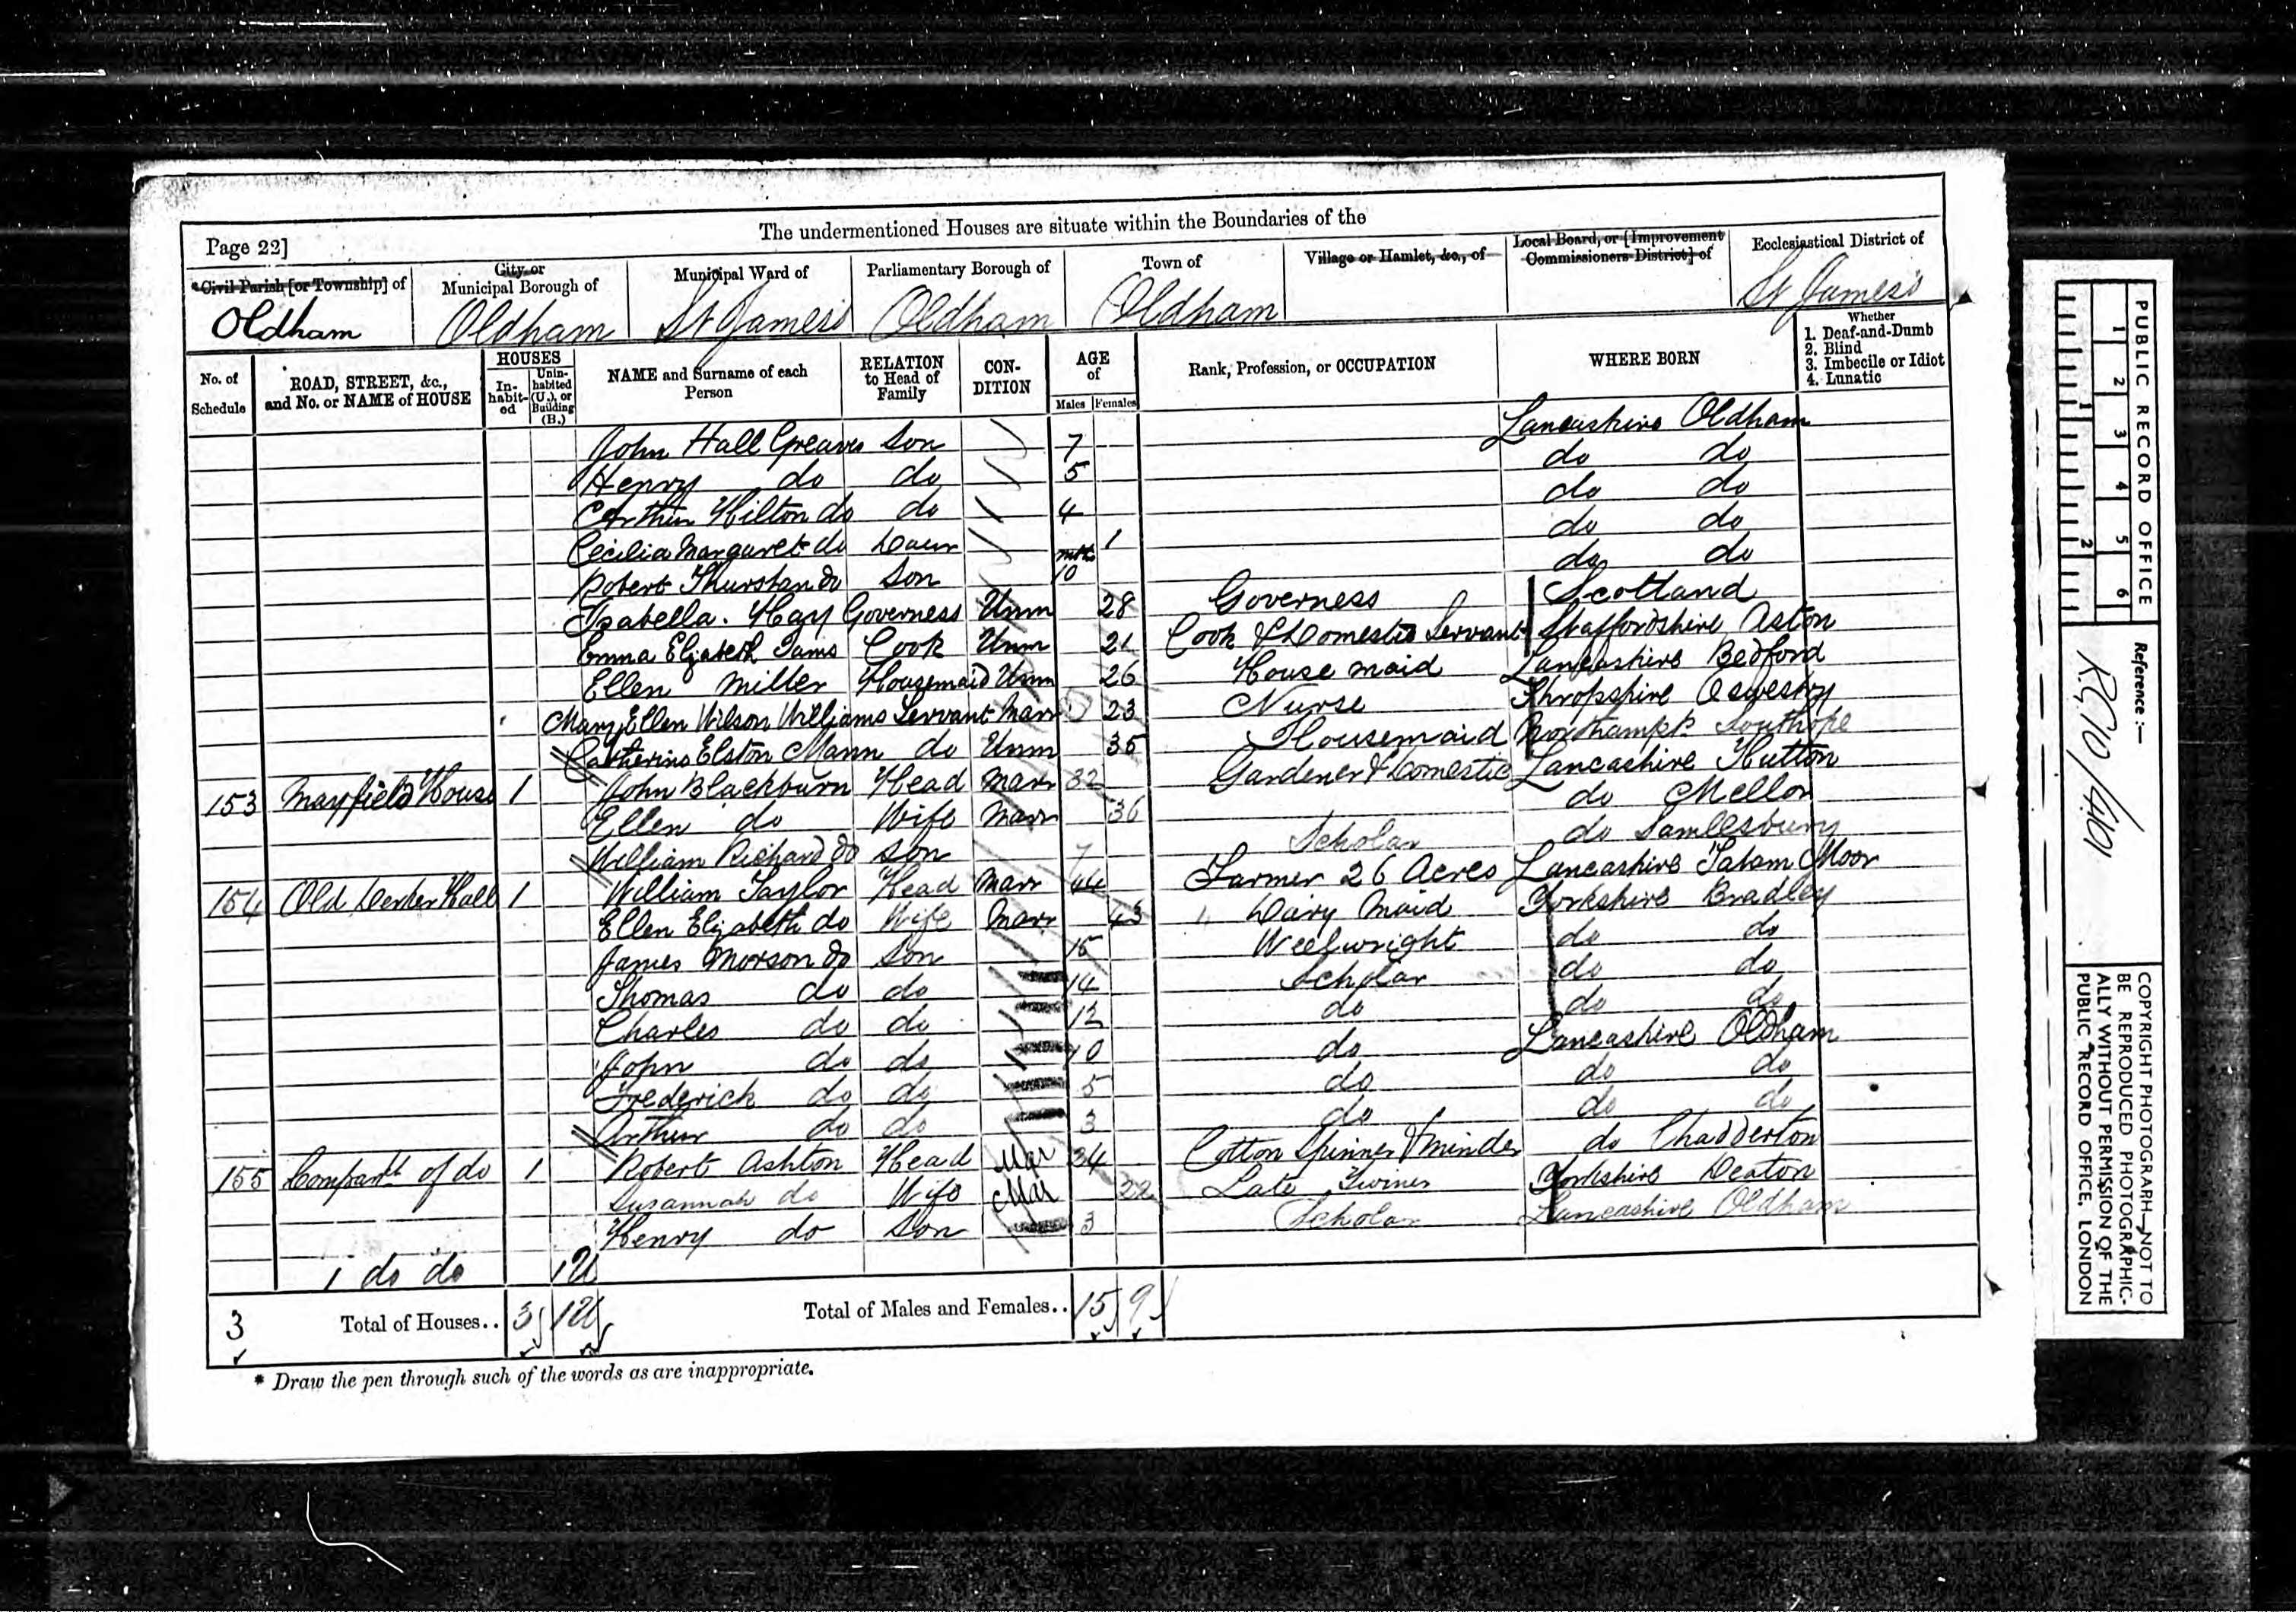 The undermentioned Houses are situate within the Boundaries of the
Page 22]
*Civil Parish [or Township] of
City or Municipal Borough of
Municipal Ward of
Parliamentary Borough of
Town of
Village or Hamlet, &c., of
Local Board, or [Improvement Commissioners District] of
Ecclesiastical District of
Oldham Oldham St James's Oldham Oldham St James's
No. of Schedule
ROAD, STREET, &c., and No. or NAME of HOUSE
HOUSES
In-habit-ed
Unin-habited (U.), or Building (B.)
NAME and Surname of each Person
RELATION to Head of Family
CON-DITION
AGE of
Males Females
Rank, Profession, or OCCUPATION
WHERE BORN
Whether
1. Deaf-and-Dumb
2. Blind
3. Imbecile or Idiot
4. Lunatic
John Hall Greaves Son 7 Lancashire Oldham
Henry do do 5 do do
Arthur Hilton do do 4 do do
Cecilia Margaret do Daur 1 do do
Robert Thurstan do Son mths 10 do do
Isabella. Hay Governess Unm 28 Governess Scotland
Emma Elizabeth Tams Cook Unm 21 Cook & Domestic Servant Staffordshire Aston
Ellen Miller Housemaid Unm 26 House maid Lancashire Bedford
Mary Ellen Wilson Williams Servant Marr 23 Nurse Shropshire Oswestry
Catherine Elston Mann do Unm 35 Housemaid Southope
153 Mayfield House 1 John Blackburn Head Marr 32 Gardener & Domestic Lancashire Hutton
Ellen do Wife Marr 36 do Mellor
William Richard do Son 7 Scholar do Samlesbury
154 Old Derker Hall 1 William Taylor Head Marr 44 Farmer 26 Acres Lancashire Tatam Moor
Ellen Elizabeth do Wife Marr 43 " Dairy Maid Yorkshire Bradley
James Morson do Son 15 Weelwright do do
Thomas do do 14 Scholar do do
Charles do do 12 do do do
John do do 10 do Lancashire Oldham
Frederick do do 5 do do do
Arthur do do 3 do do do
155 Compart of do 1 Robert Ashton Head Mar 34 Cotton Spinner & minder do Chadderton
Susannah do Wife Mar 32 Late Twiner Yorkshire Deaton
Henry do Son 3 Scholar Lancashire Oldham
1 do do 1U
3 Total of Houses.. 3 1U Total of Males and Females.. 15 9
* Draw the pen through such of the words as are inappropriate.
PUBLIC RECORD OFFICE
1 2 3 4 5 6
1 2
Reference:—
R.G. 10/4101
COPYRIGHT PHOTOGRAPH—NOT TO
BE REPRODUCED PHOTOGRAPHIC-
ALLY WITHOUT PERMISSION OF THE
PUBLIC RECORD OFFICE, LONDON